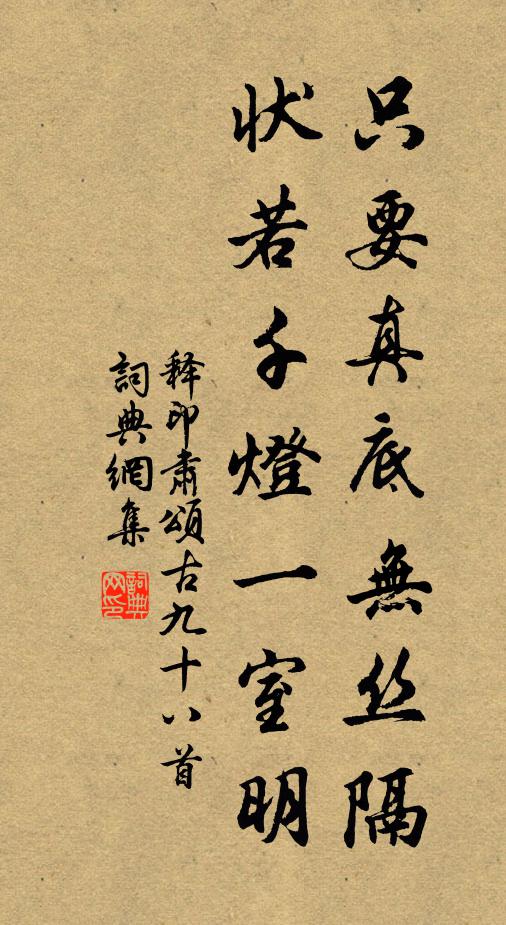 只要真底無丝隔
状若千燈一室明
释印肅頌古九十八首
詞典網集
詞典網印